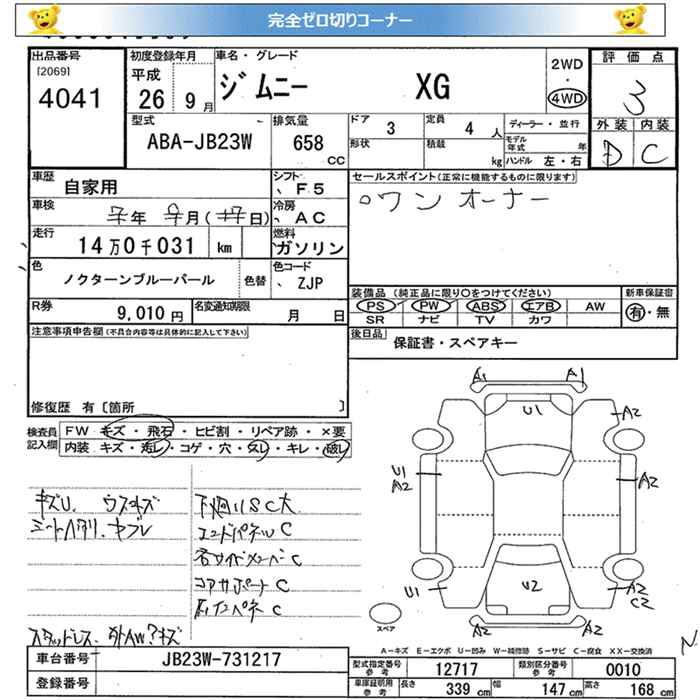 完全ゼロ切りコーナー
出品番号
[2069]
4041
初度登録年月
平成
26 9月
車名・グレード
ジムニー XG
2WD
・
4WD
評価点
3
外装 内装
D C
型式
ABA-JB23W
排気量
658
CC
ドア 3
定員 4 人
形状
積載 kg
ディーラー・並行
モデル年式 年
ハンドル 左・右
車歴 自家用
シフト F5
車検 年 月( 日)
冷房 AC
走行 14万0千031 km
燃料 ガソリン
色 ノクターンブルーパール
色替
色コード ZJP
R券 9,010円
名変通知期限 月 日
セールスポイント(正常に機能するものに限ります)
ワンオーナー
装備品 (純正品に限り○をつけてください)
新車保証書
PS PW ABS エアB AW
有・無
SR ナビ TV カワ
後日品 保証書・スペアキー
注意事項申告欄(不具合内容等は具体的に記入して下さい)
修復歴 有[箇所 ]
検査員記入欄
FW キズ・飛石・ヒビ割・リペア跡・×要
内装 キズ・汚レ・コゲ・穴・スレ・キレ・破レ
キズU. ウスキズ
シートヘタリ.
下廻りSC大
エンドパネルC
右サイドメンバーC
コアサポートC
スタッドレス
A1 A1
U1
A2
U1
A2
A2
U1
U2
A2
C2
スペア
A-キズ E-エクボ U-凹み W-補修跡 S-サビ C-腐食 XX-交換済
車台番号 JB23W-731217
登録番号
型式指定番号 参考 12717
類別区分番号 参考 0010
車庫証明用 参考 長さ 339 cm 幅 147 cm 高さ 168 cm